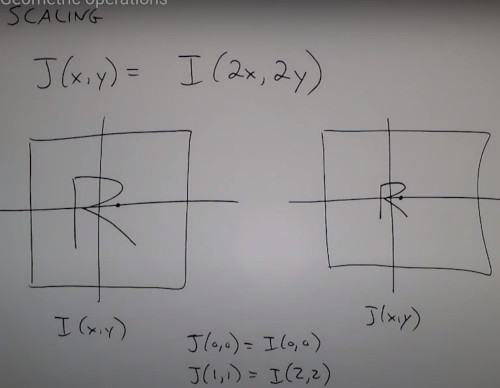 Geometric operations
SCALING
J(x,y) = I(2x,2y)
R
R
I(x,y)
J(x,y)
J(0,0) = I(0,0)
J(1,1) = I(2,2)